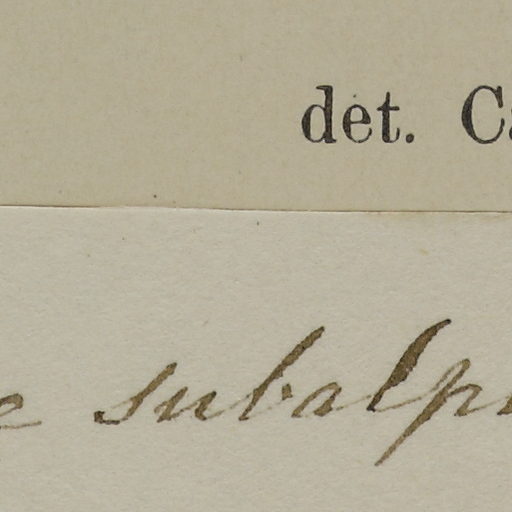 det. C
subalp